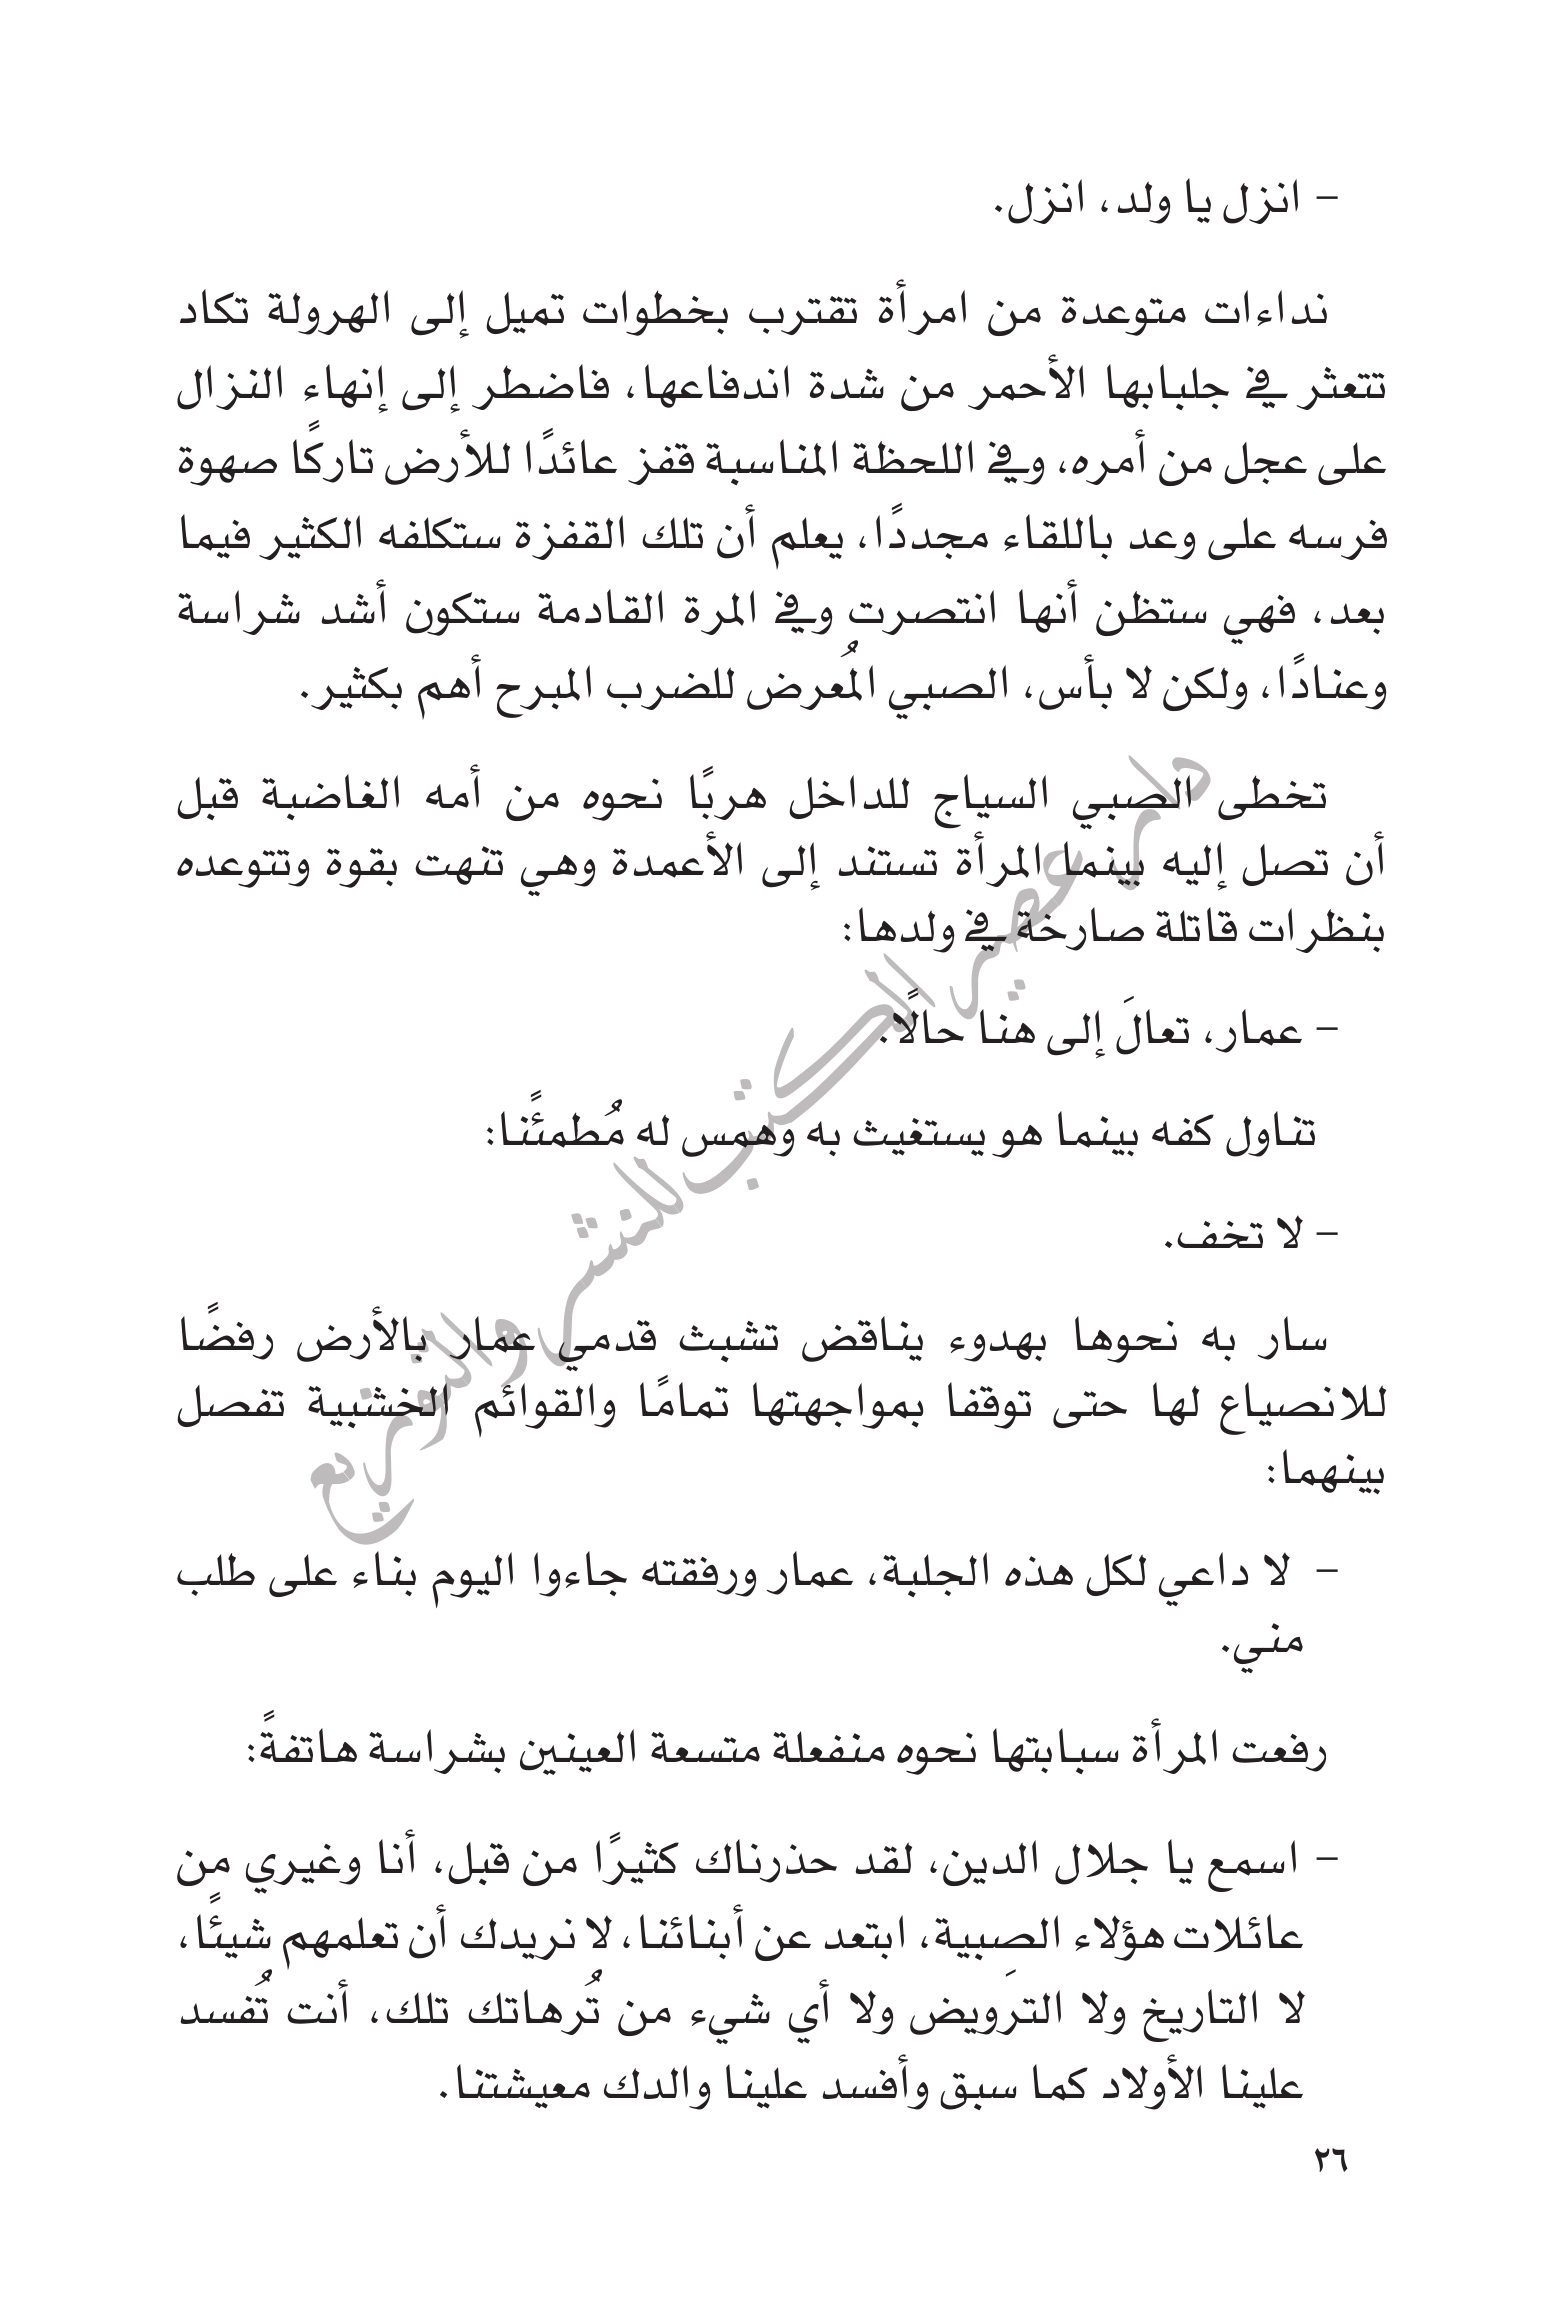 – انزل يا ولد، انزل.
نداءات متوعدة من امرأة تقترب بخطوات تميل إلى الهرولة تكاد
تتعثر في جلبابها الأحمر من شدة اندفاعها، فاضطر إلى إنهاء النزال
على عجل من أمره، وفي اللحظة المناسبة قفز عائدًا للأرض تاركًا صهوة
فرسه على وعد باللقاء مجددًا، يعلم أن تلك القفزة ستكلفه الكثير فيما
بعد، فهي ستظن أنها انتصرت وفي المرة القادمة ستكون أشد شراسة
وعنادًا، ولكن لا بأس، الصبي المُعرض للضرب المبرح أهم بكثير.
تخطى الصبي السياج للداخل هربًا نحوه من أمه الغاضبة قبل
أن تصل إليه بينما المرأة تستند إلى الأعمدة وهي تنهت بقوة وتتوعده
بنظرات قاتلة صارخة في ولدها:
– عمار، تعالَ إلى هنا حالًا.
تناول كفه بينما هو يستغيث به وهمس له مُطمئًنا:
– لا تخف.
سار به نحوها بهدوء يناقض تشبث قدمي عمار بالأرض رفضًا
للانصياع لها حتى توقفا بمواجهتها تمامًا والقوائم الخشبية تفصل
بينهما:
– لا داعي لكل هذه الجلبة، عمار ورفقته جاءوا اليوم بناء على طلب
مني.
رفعت المرأة سبابتها نحوه منفعلة متسعة العينين بشراسة هاتفةً:
– اسمع يا جلال الدين، لقد حذرناك كثيرًا من قبل، أنا وغيري من
عائلات هؤلاء الصِبية، ابتعد عن أبنائنا، لا نريدك أن تعلمهم شيئًا،
لا التاريخ ولا الترَويض ولا أي شيء من تُرهاتك تلك، أنت تُفسد
علينا الأولاد كما سبق وأفسد علينا والدك معيشتنا.
٢٦
دار عصير الكتب للنشر والتوزيع